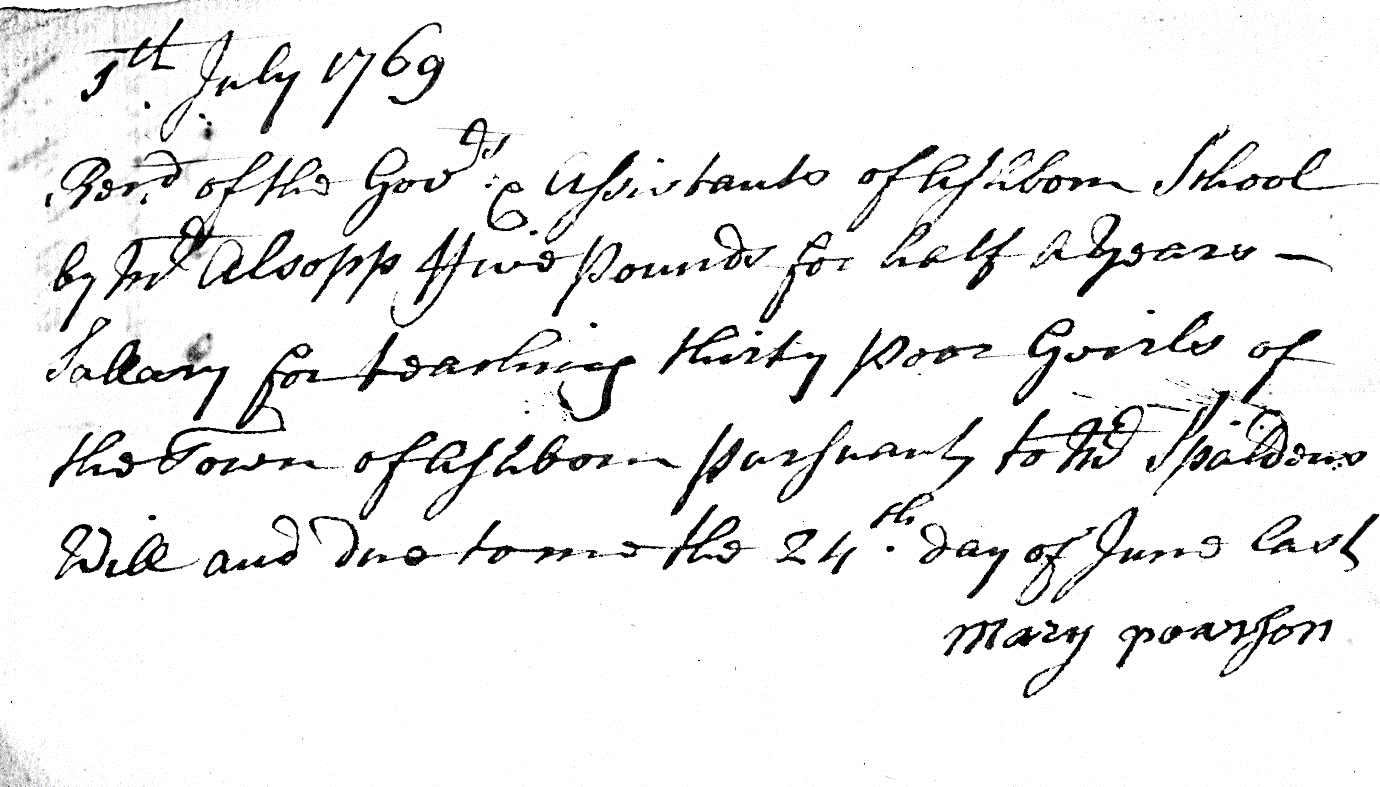 5th July 1769
Recd of the Govrs & Assistants of Ashborn School
by Mr Alsopp ffive Pounds for half a Years —
Sallary for teaching thirty poor Goirls of
the Town of Ashborn pursuant to Mr Spaldens
Will and due to me the 24th day of June last
Mary pearson